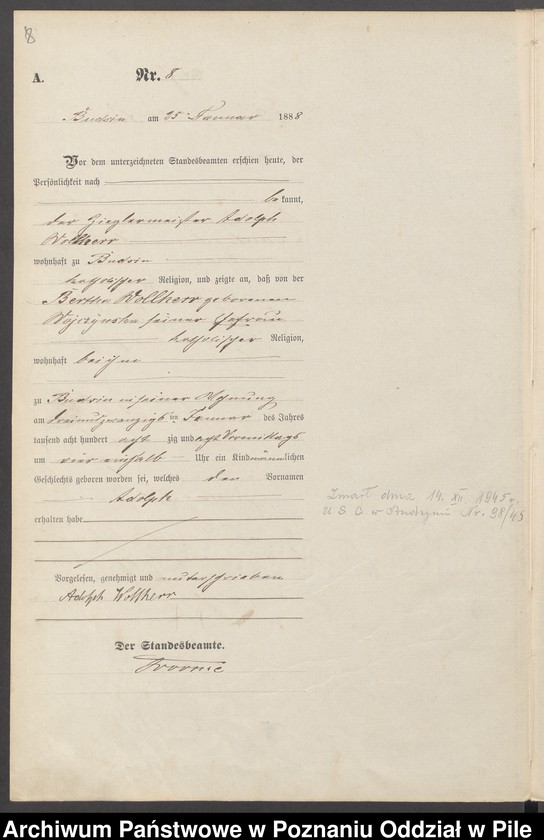 8
A.
Nr. 8
Budsin am 25 Januar 1888
Vor dem unterzeichneten Standesbeamten erschien heute, der
Persönlichkeit nach
bekannt,
der Zieglermeister Adolph
Wollherr
wohnhaft zu Budsin
katholischer Religion, und zeigte an, daß von der
Bertha Wollherr geborenen
Wojczynska seiner Ehefrau
katholischer Religion,
wohnhaft bei ihm
zu Budsin in seiner Wohnung
am dreiundzwanzigsten Januar des Jahres
tausend acht hundert achtzig und acht Vormittags
um vier einhalb Uhr ein Kind männlichen
Geschlechts geboren worden sei, welches den Vornamen
Adolph
erhalten habe
Vorgelesen, genehmigt und unterschrieben
Adolph Wollherr
Der Standesbeamte.
Zmarł dnia 14. XII. 1945 r.
U.S.C. w Nr. 98/45
Archiwum Państwowe w Poznaniu Oddział w Pile